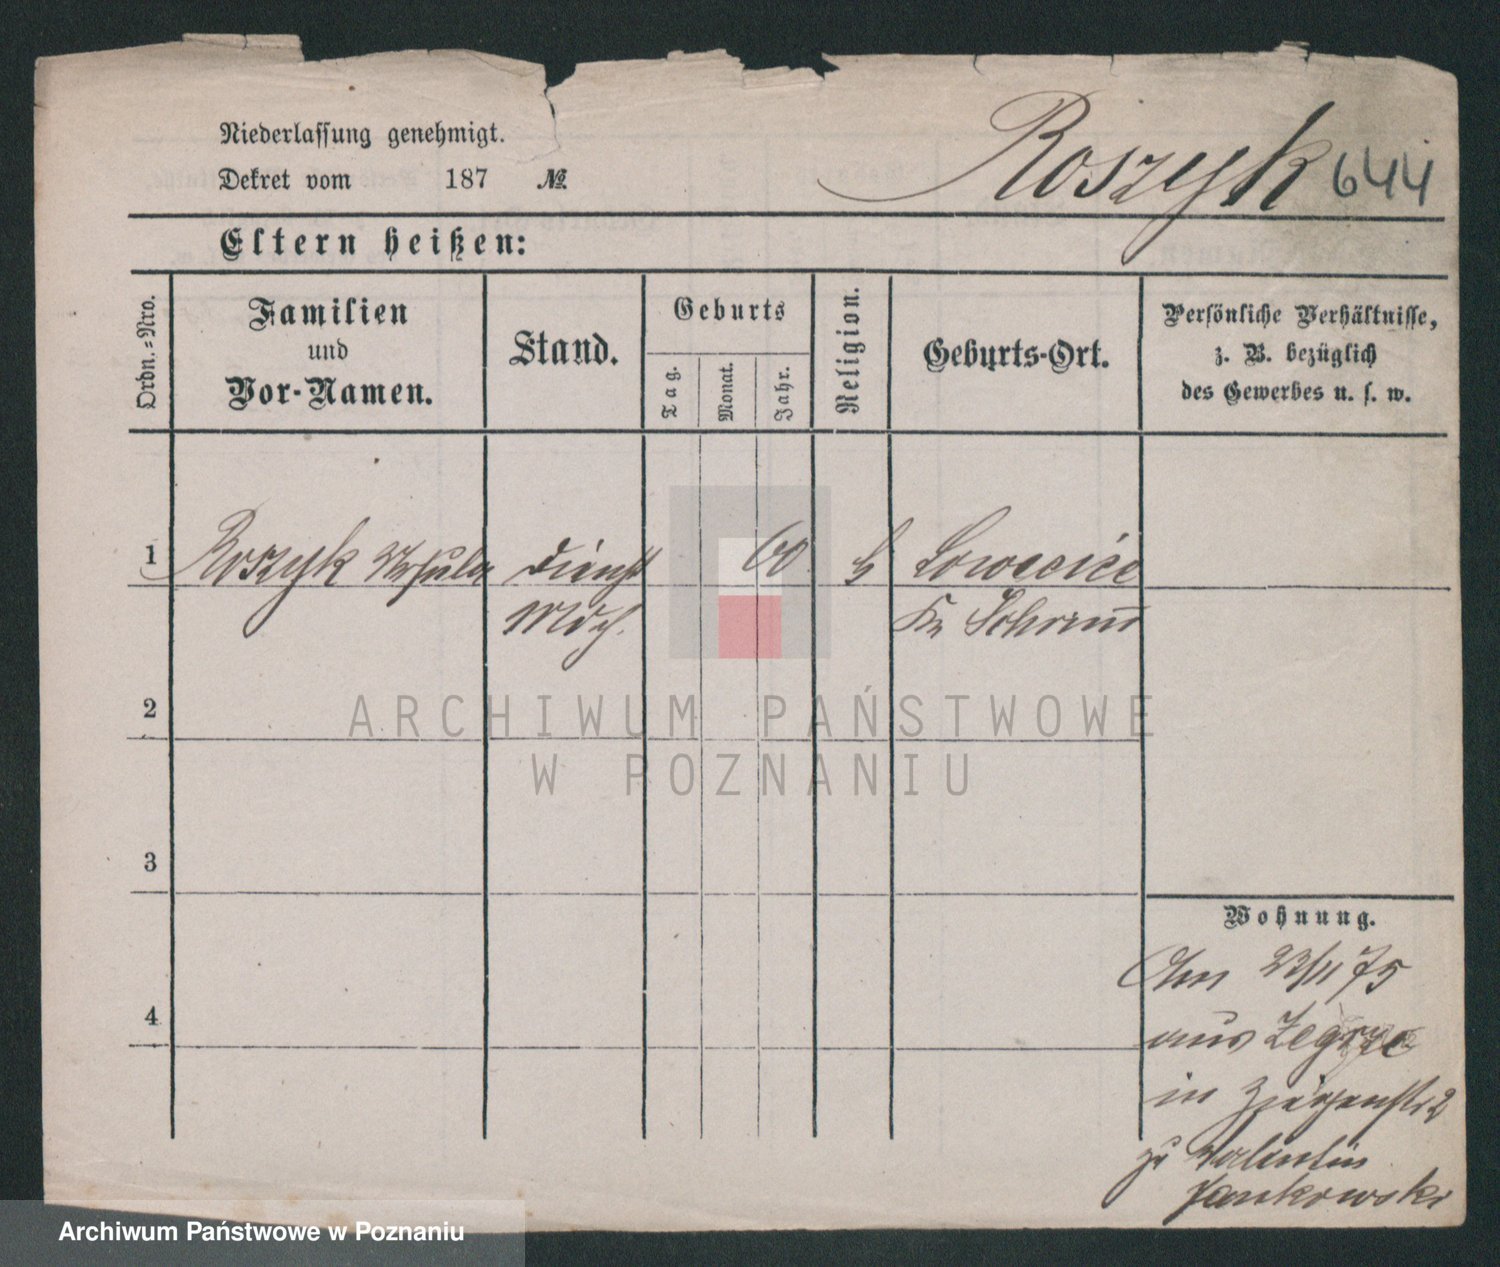 Niederlassung genehmigt.
Dekret vom 187 №
Roszyk 644
Eltern heißen:
Ordn.=Nro.
Familien
und
Vor-Namen.
Stand.
Geburts
Tag.
Monat.
Jahr.
Religion.
Geburts-Ort.
Persönliche Verhältnisse,
z. B. bezüglich
des Gewerbes u. s. w.
1 Roszyk Ursula Dienst 60 Lowecice
Mdch. Kr Schrim
2
3
4
Wohnung.
Am 23/11 75
aus Zegrze
in
zu Valentin
Jankowski
ARCHIWUM PAŃSTWOWE
W POZNANIU
Archiwum Państwowe w Poznaniu